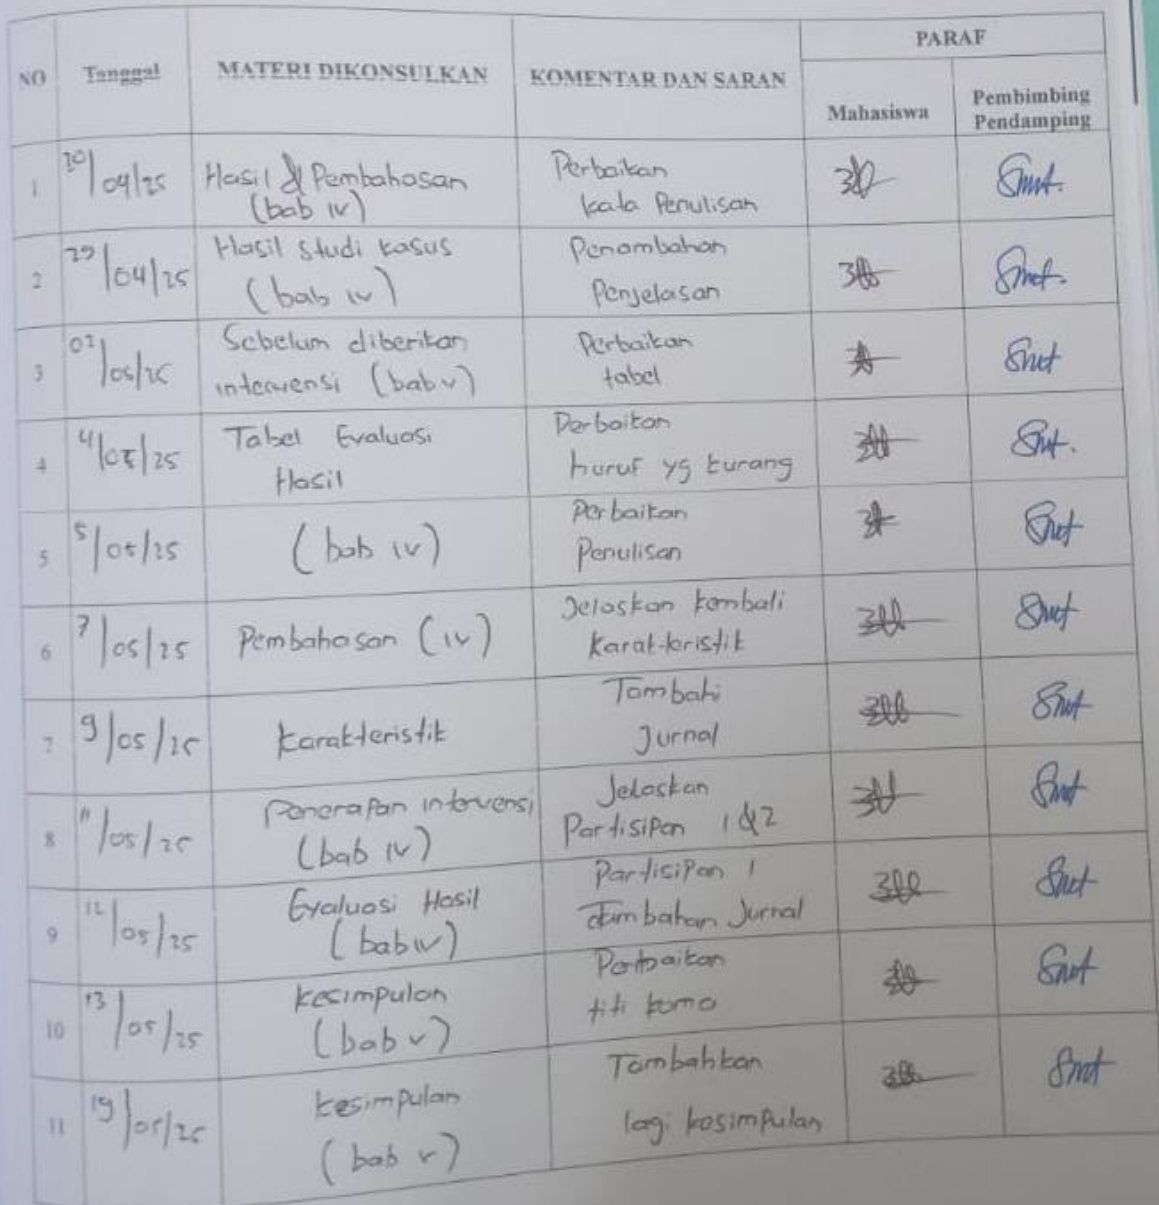 PARAF
NO Tanggal MATERI DIKONSULKAN KOMENTAR DAN SARAN
Mahasiswa Pembimbing
Pendamping
1 30/04/25 Hasil & Pembahasan Perbaikan
(bab iv) kata Penulisan
2 29/04/25 Hasil studi kasus Penambahan
(bab iv) Penjelasan
3 02/05/25 Sebelum diberikan Perbaikan
intervensi (bab v) tabel
4 4/05/25 Tabel Evaluasi Perbaikan
Hasil huruf yg kurang
5 5/05/25 (bab iv) Perbaikan
Penulisan
6 7/05/25 Pembahasan (iv) Jelaskan kembali
karakteristik
7 9/05/25 karakteristik Tambahi
Jurnal
8 11/05/25 Penerapan intervensi Jelaskan
(bab iv) Partisipan 1 & 2
9 12/05/25 Evaluasi Hasil Partisipan 1
(bab iv) tambahan Jurnal
10 13/05/25 kesimpulan Perbaikan
(bab v) titi koma
11 19/05/25 kesimpulan Tambahkan
(bab v) lagi kesimpulan